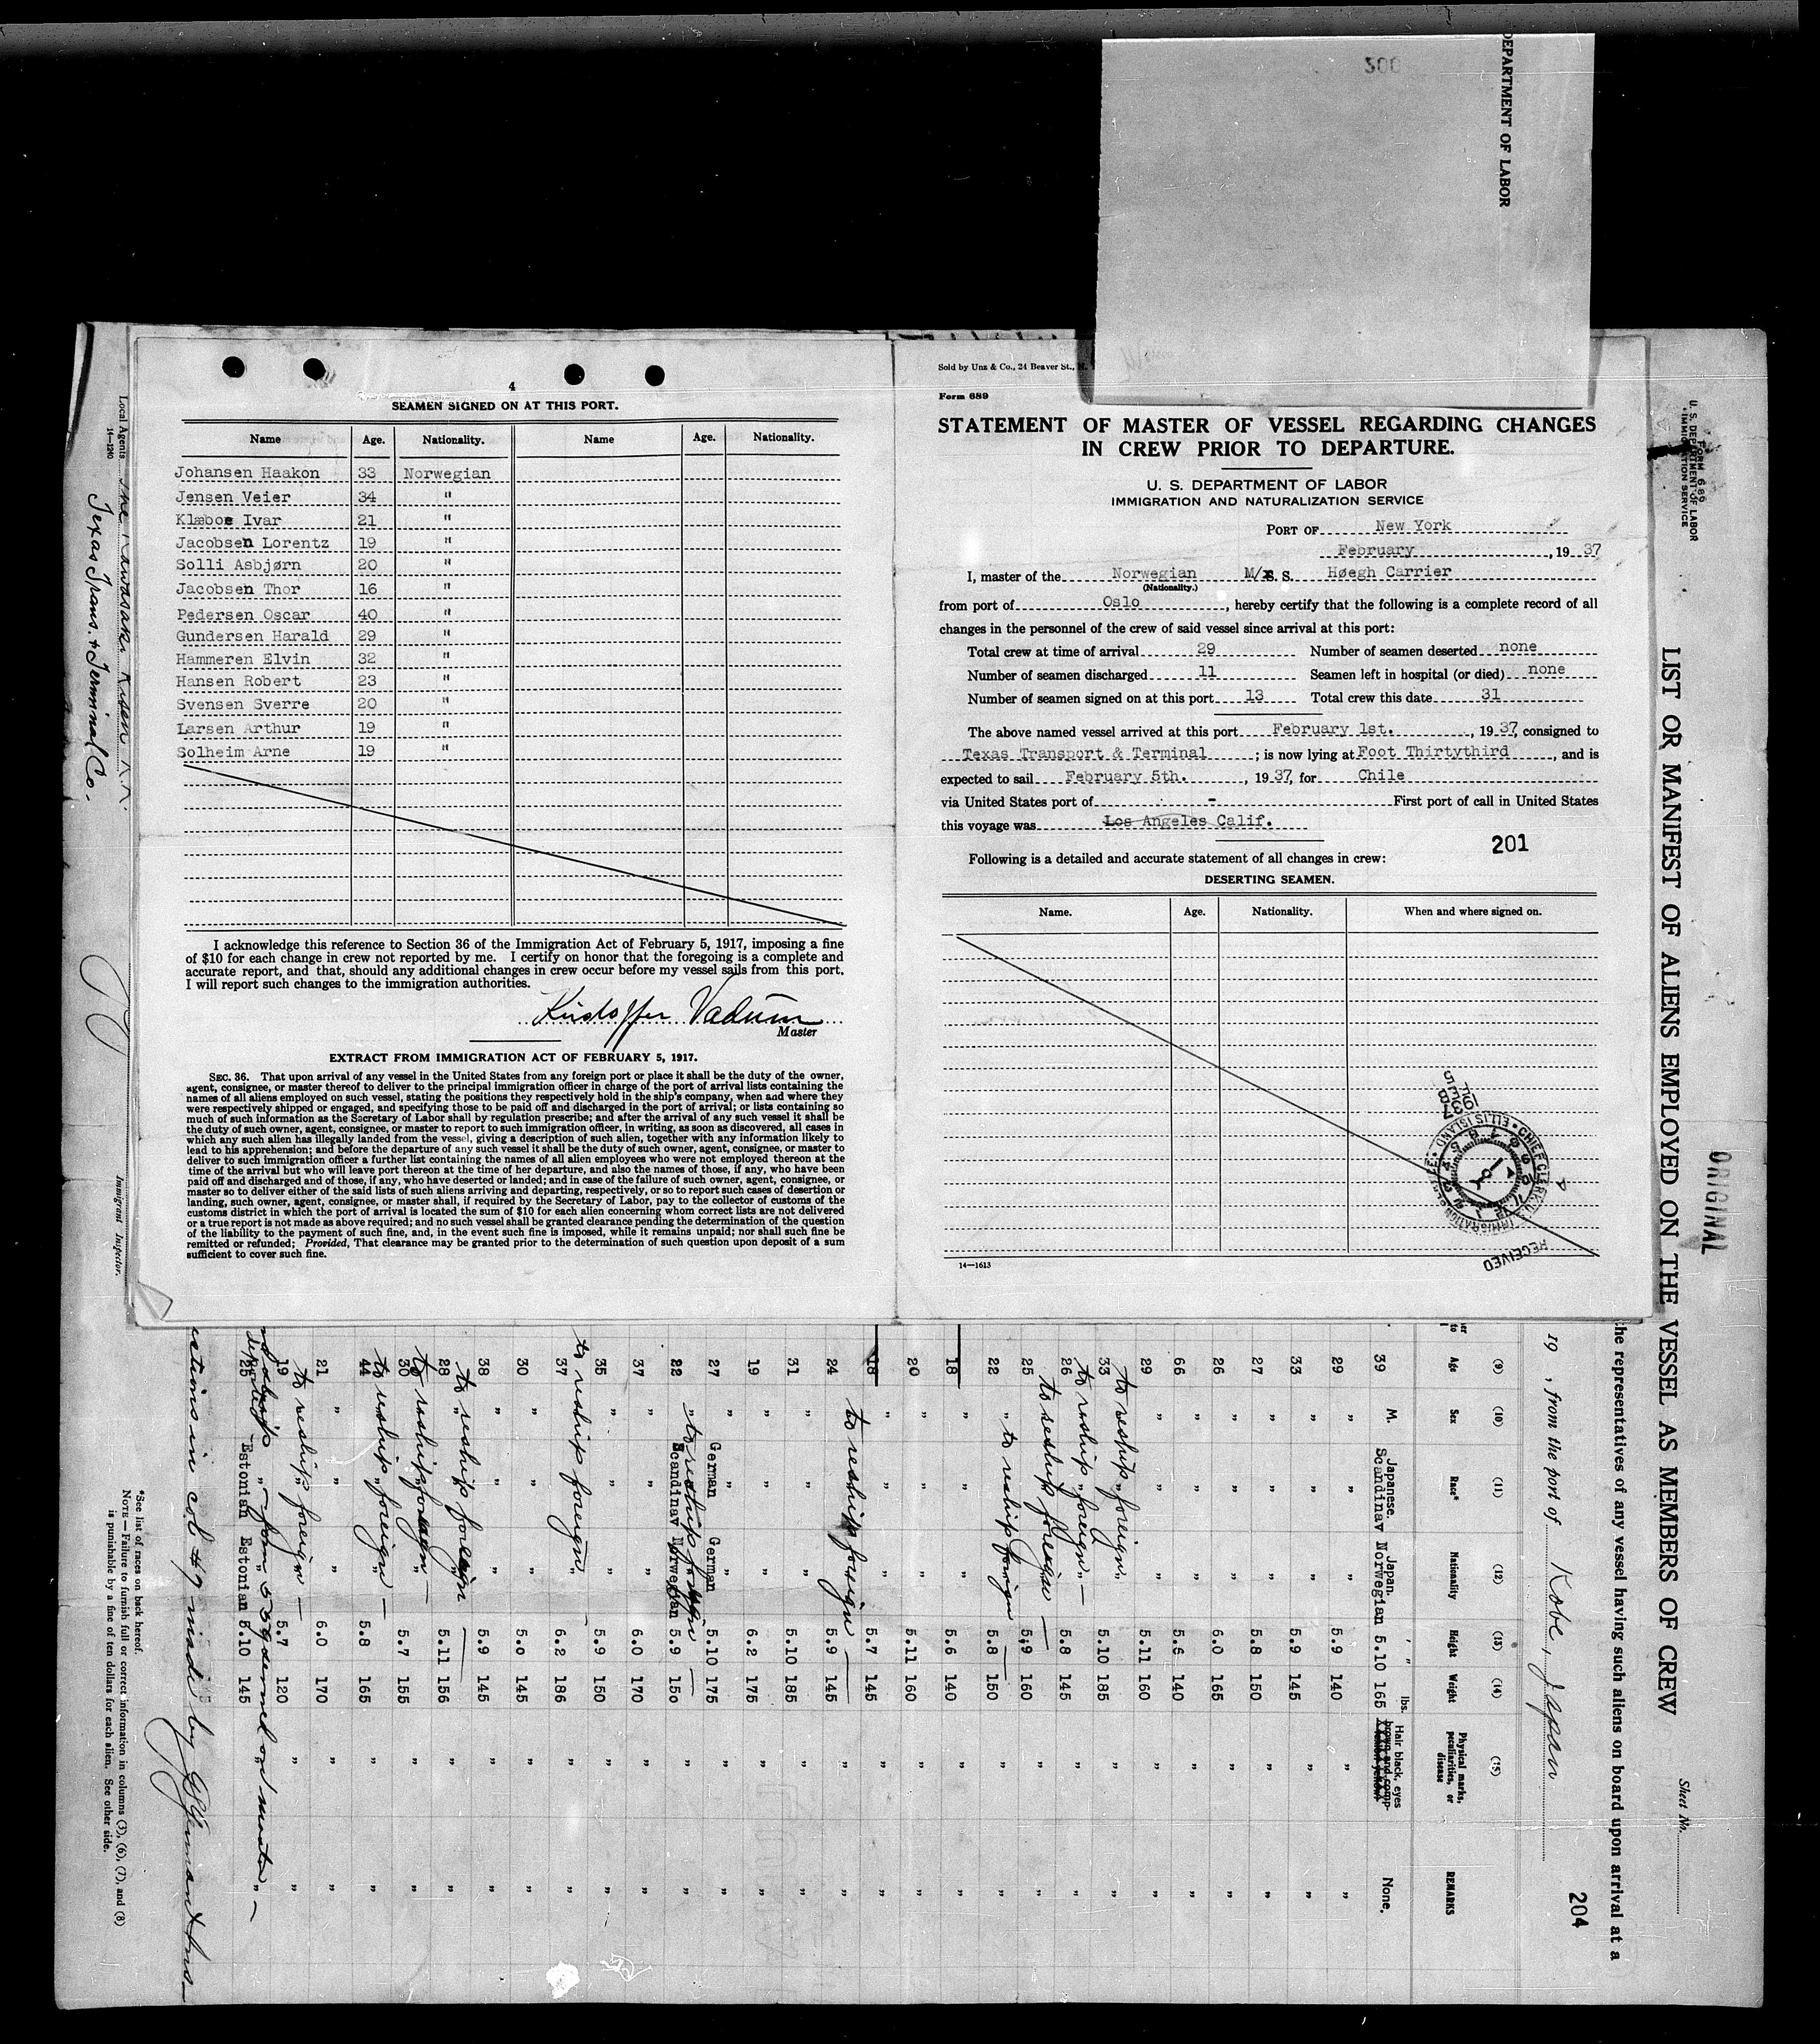 200
DEPARTMENT OF LABOR
4
SEAMEN SIGNED ON AT THIS PORT.
Name Age. Nationality. Name Age. Nationality.
Johansen Haakon 33 Norwegian
Jensen Veier 34 "
Klæboe Ivar 21 "
Jacobsen Lorentz 19 "
Solli Asbjørn 20 "
Jacobsen Thor 16 "
Pedersen Oscar 40 "
Gundersen Harald 29 "
Hammeren Elvin 32 "
Hansen Robert 23 "
Svensen Sverre 20 "
Larsen Arthur 19 "
Solheim Arne 19 "
I acknowledge this reference to Section 36 of the Immigration Act of February 5, 1917, imposing a fine
of $10 for each change in crew not reported by me. I certify on honor that the foregoing is a complete and
accurate report, and that, should any additional changes in crew occur before my vessel sails from this port,
I will report such changes to the immigration authorities.
Kristoffer Vadum
Master
EXTRACT FROM IMMIGRATION ACT OF FEBRUARY 5, 1917.
SEC. 36. That upon arrival of any vessel in the United States from any foreign port or place it shall be the duty of the owner,
agent, consignee, or master thereof to deliver to the principal immigration officer in charge of the port of arrival lists containing the
names of all aliens employed on such vessel, stating the positions they respectively hold in the ship's company, when and where they
were respectively shipped or engaged, and specifying those to be paid off and discharged in the port of arrival; or lists containing so
much of such information as the Secretary of Labor shall by regulation prescribe; and after the arrival of any such vessel it shall be
the duty of such owner, agent, consignee, or master to report to such immigration officer, in writing, as soon as discovered, all cases in
which any such alien has illegally landed from the vessel, giving a description of such alien, together with any information likely to
lead to his apprehension; and before the departure of any such vessel it shall be the duty of such owner, agent, consignee, or master to
deliver to such immigration officer a further list containing the names of all alien employees who were not employed thereon at the
time of the arrival but who will leave port thereon at the time of her departure, and also the names of those, if any, who have been
paid off and discharged and of those, if any, who have deserted or landed; and in case of the failure of such owner, agent, consignee, or
master so to deliver either of the said lists of such aliens arriving and departing, respectively, or so to report such cases of desertion or
landing, such owner, agent, consignee, or master shall, if required by the Secretary of Labor, pay to the collector of customs of the
customs district in which the port of arrival is located the sum of $10 for each alien concerning whom correct lists are not delivered
or a true report is not made as above required; and no such vessel shall be granted clearance pending the determination of the question
of the liability to the payment of such fine, and, in the event such fine is imposed, while it remains unpaid; nor shall such fine be
remitted or refunded; Provided, That clearance may be granted prior to the determination of such question upon deposit of a sum
sufficient to cover such fine.
Sold by Unz & Co., 24 Beaver St.,
Form 689
STATEMENT OF MASTER OF VESSEL REGARDING CHANGES
IN CREW PRIOR TO DEPARTURE.
U. S. DEPARTMENT OF LABOR
IMMIGRATION AND NATURALIZATION SERVICE
PORT OF New York
February, 1937
I, master of the Norwegian M/S. S. Høegh Carrier
(Nationality.)
from port of Oslo, hereby certify that the following is a complete record of all
changes in the personnel of the crew of said vessel since arrival at this port:
Total crew at time of arrival 29 Number of seamen deserted none
Number of seamen discharged 11 Seamen left in hospital (or died) none
Number of seamen signed on at this port 13 Total crew this date 31
The above named vessel arrived at this port February 1st., 1937, consigned to
Texas Transport & Terminal; is now lying at Foot Thirtythird, and is
expected to sail February 5th., 1937, for Chile
via United States port of - First port of call in United States
this voyage was Los Angeles Calif.
201
Following is a detailed and accurate statement of all changes in crew:
DESERTING SEAMEN.
Name. Age. Nationality. When and where signed on.
1937 FEB 5
CHIEF CLERK U.S. IMMIGRATION SERVICE ELLIS ISLAND
RECEIVED
14—1613
ORIGINAL
FORM 686
U. S. DEPARTMENT OF LABOR
IMMIGRATION SERVICE
Sheet No.
LIST OR MANIFEST OF ALIENS EMPLOYED ON THE VESSEL AS MEMBERS OF CREW
the representatives of any vessel having such aliens on board upon arrival at a
204
19 , from the port of Kobe, Japan
(9) (10) (11) (12) (13) (14) (15)
Age Sex Race* Nationality Height Weight Physical marks, peculiarities, or disease REMARKS
Japanese. Japan. ' " lbs. Hair black, eyes
39 M. Scandinav Norwegian 5.10 165 None.
29 " " " 5.9 140 " "
33 " " " 5.9 145 " "
27 " " " 5.8 150 " "
26 " " " 6.0 165 " "
66 " " " 5.6 140 " "
29 " " " 5.11 160 " "
33 to reship foreign 5.10 185 " "
26 to reship foreign 5.8 145 " "
25 to reship foreign 5.9 160 " "
22 " to reship foreign 5.8 150 " "
18 " " " 5.6 140 " "
20 " " " 5.11 160 " "
18 " " " 5.7 145 " "
24 to reship foreign 5.9 145 " "
31 " " " 5.10 185 " "
19 " " " 6.2 175 " "
27 " German German 5.10 175 " "
22 " to reship foreign Scandinav Norwegian 5.9 150 " "
37 " " " 6.0 170 " "
35 " " " 5.9 150 " "
37 to reship foreign 6.2 186 " "
30 " " " 5.0 145 " "
38 " " " 5.9 145 " "
28 to reship foreign 5.11 156 " "
30 to reship foreign 5.7 155 " "
44 to reship foreign 5.8 165 " "
21 " " " 6.0 170 " "
19 to reship foreign 5.7 120 " "
25 Estonian Estonian 5.10 145
in col #9 made by
*See list of races on back hereof.
NOTE — Failure to furnish full or correct information in columns (3), (6), (7), and (8)
is punishable by a fine of ten dollars for each alien. See other side.
Local Agents The Kawasaki Kisen K.K.
14—1240
Texas Trans. & Terminal Co.
Immigrant Inspector.